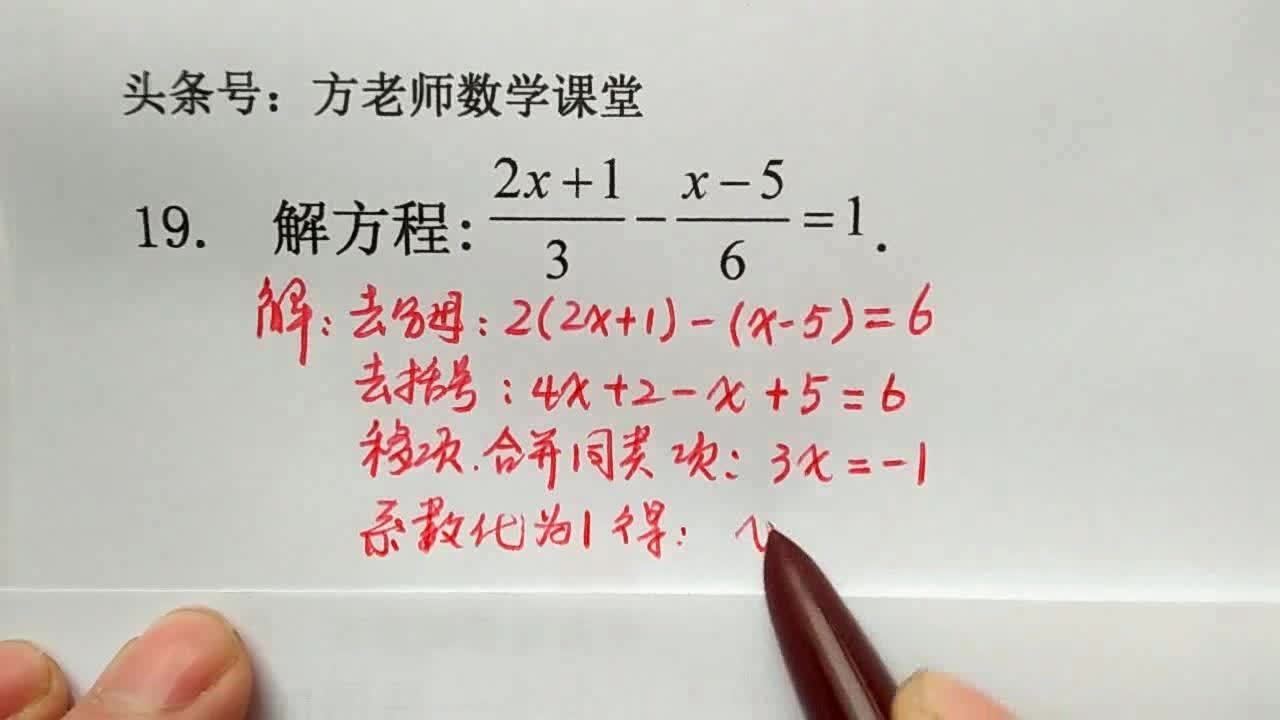 头条号：方老师数学课堂
19. 解方程：(2x+1)/3 - (x-5)/6 = 1.
解：去分母：2(2x+1)-(x-5)=6
去括号：4x+2-x+5=6
移项.合并同类项：3x=-1
系数化为1得：